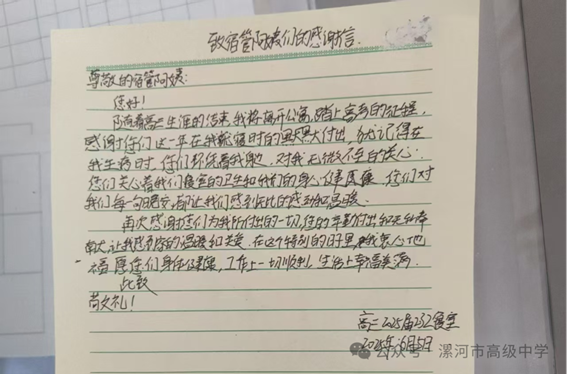 致宿管阿姨们的感谢信
尊敬的宿管阿姨:
您好!
随着高三生涯的结束,我将离开公寓,踏上高考的征程,
感谢你们这一年在我就寝时的默默付出,犹记得在
我生病时,你们都凭着我,对我无微不至的关心。
您们关心着我们寝室的卫生和我们的身心健康,您们对
我们每一句嘱咐,都让我们感到无比的感动和温暖。
再次感谢您们为我所付出的一切,您的辛勤付出和无私奉
献,让我感到家的温暖和关爱。在这个特别的日子里,我衷心地
祝愿您们身体健康,工作上一切顺利,生活上幸福美满。
此致
敬礼!
高三2025届232寝室
2025年6月5日
公众号·漯河市高级中学